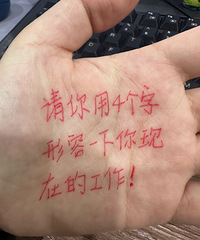 请你用4个字
形容一下你现
在的工作!